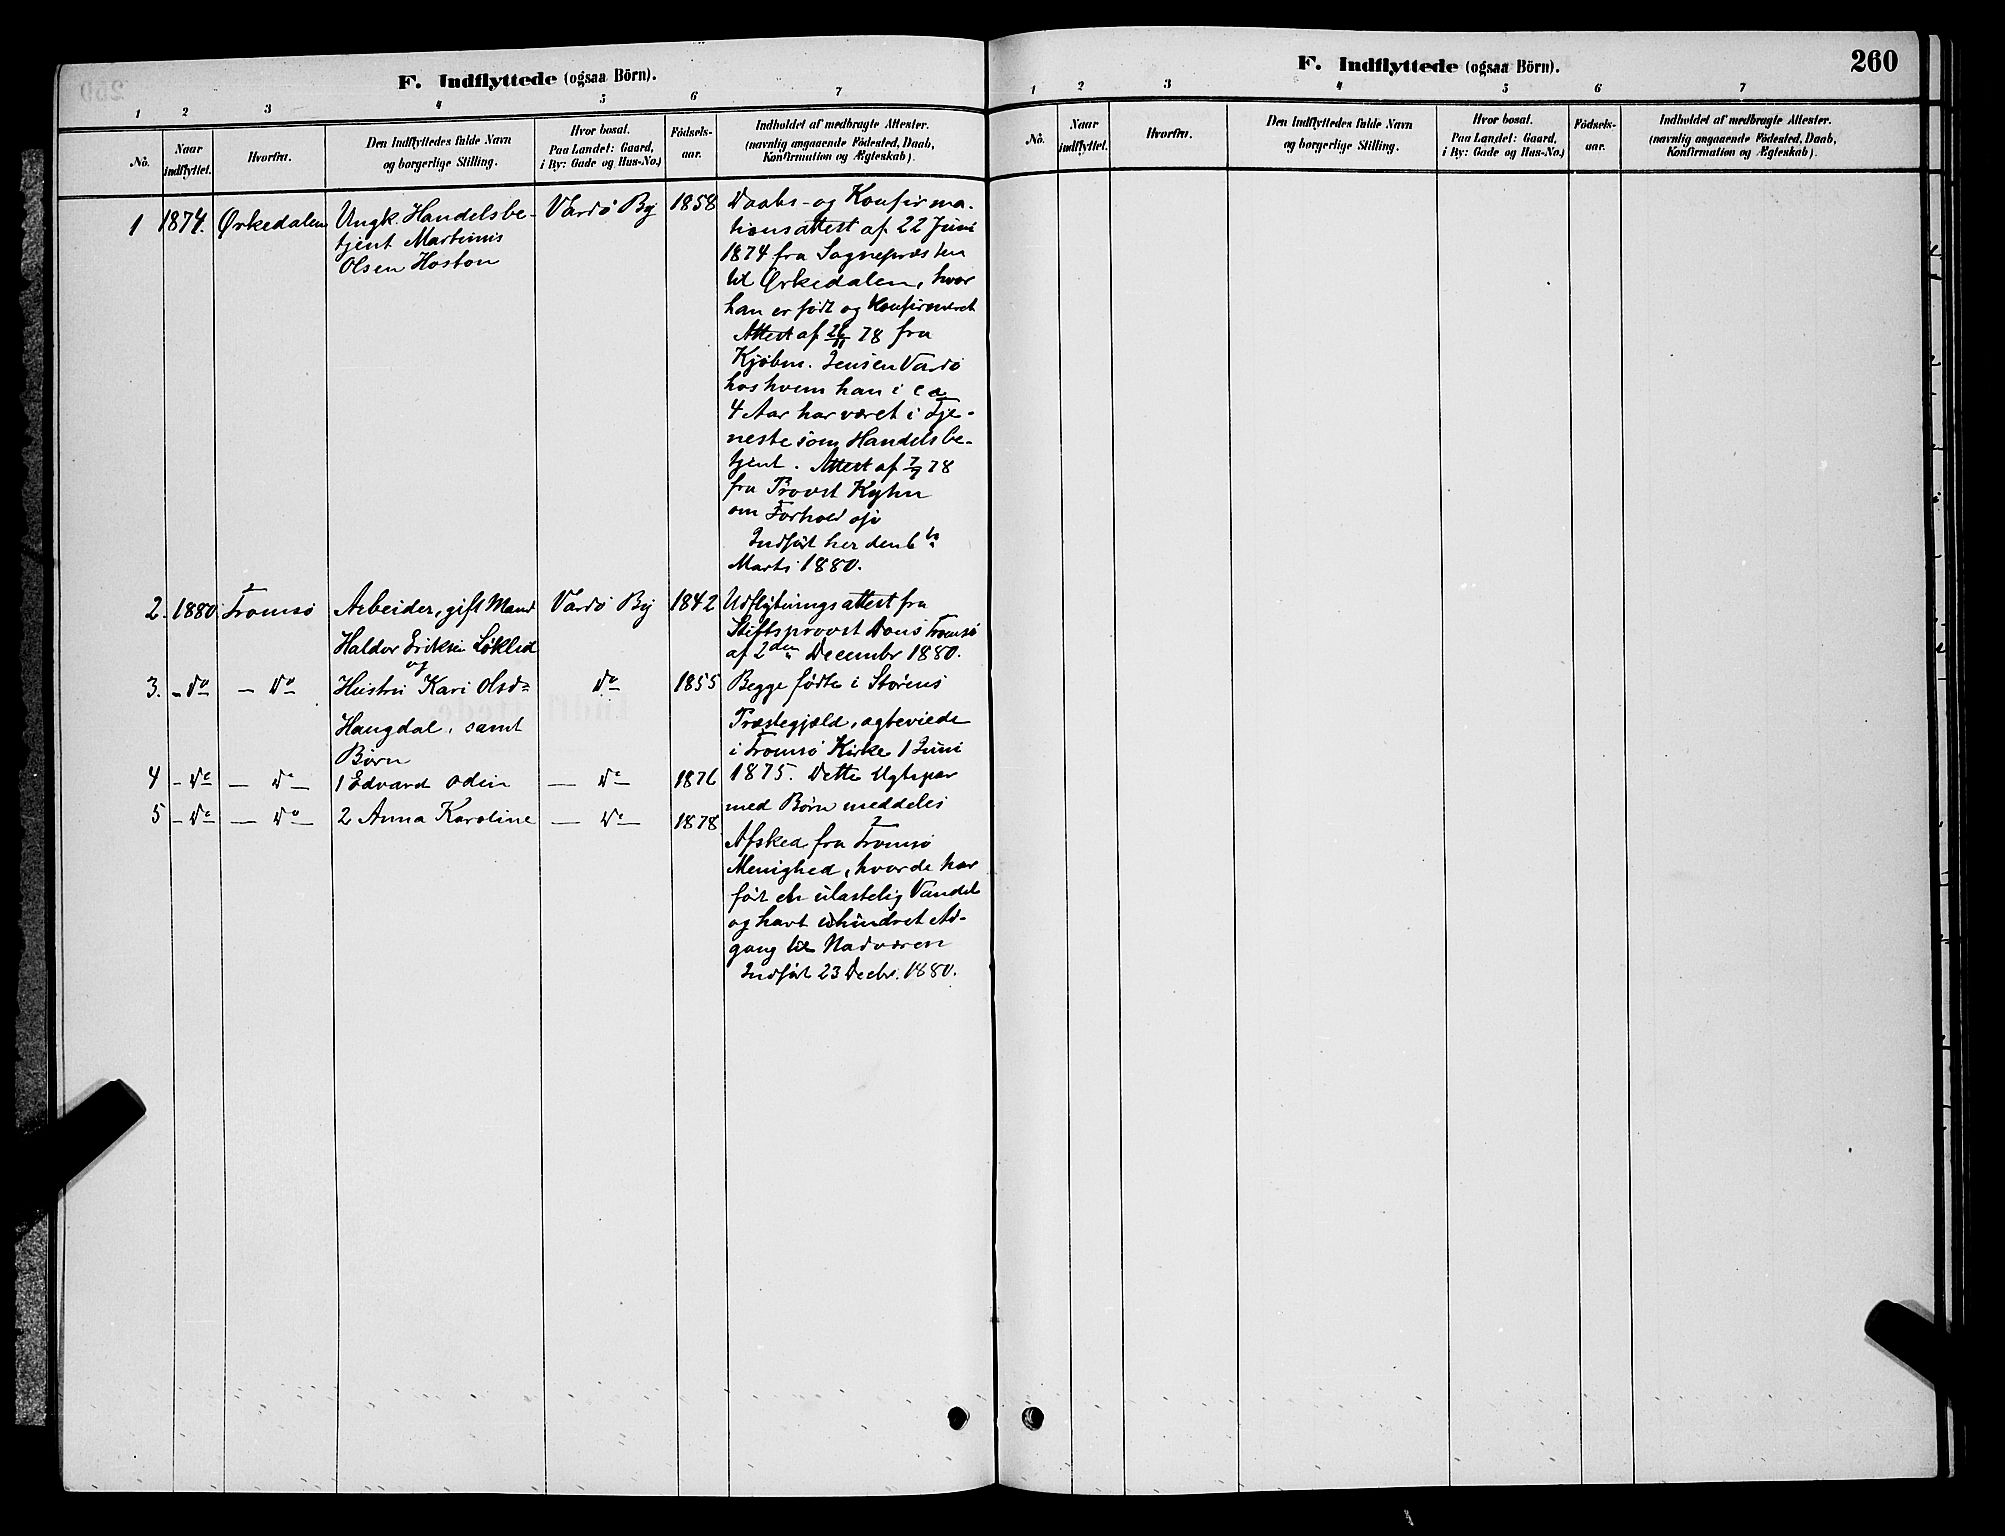 F. Indflyttede (ogsaa Börn).
1 2 3 4 5 6 7
No.
Naar indflyttet.
Hvorfra.
Den Indflyttedes fulde Navn
og borgerlige Stilling.
Hvor bosat.
Paa Landet: Gaard,
i By: Gade og Hus-No.)
Födsels-
aar.
Indholdet af medbragte Attester.
(navnlig angaaende Födested, Daab,
Konfirmation og Ægteskab).
1 1874. Ørkedalen
Ungk. Handelsbe-
tjent Martinus
Olsen Hoston
Vardö By
1858
Daabs- og Konfirma-
tionsattest af 22 Juni
1874 fra Sognepræsten
til Ørkedalen, hvor
han er født og konfirmeret
Attest af 26/11 78 fra
Kjöbm. Jensen Vardö
hos hvem han i ca
4 Aar har været i Tje-
neste som Handelsbe-
tjent. Attest af 7/9 78
fra Provst Kyhn
om Forhold
Indført her den 6te
Marts 1880.
2. 1880 Tromsö
Arbeider, gift Mand
Haldor Eriksen Løklid
og
Vardö By
1842
Udflytningsattest fra
Stiftsprovst Dons Tromsö
af 2den Decembr 1880.
3. - Do - Do
Hustru Kari Olsd.
Haugdal, samt
Børn
Do
1855
Begge födte i Størens
Præstegjæld, ogteviede
i Tromsö Kirke 1 Juni
4 - Do - Do
1 Edvard Odin
- Do -
1876
1875. Dette Egtepar
5 - Do - Do -
2 Anna Karoline
- Do -
1878
med Børn meddeles
Afsked fra Tromsö
Menighed, hvor de har
ført en ulastelig Vandel
og havt uhindret Ad-
gang til Nadveren
Indført 23 Decbr. 1880.
F. Indflyttede (ogsaa Börn).
260
1 2 3 4 5 6 7
No.
Naar
indflyttet.
Hvorfra.
Den Indflyttedes fulde Navn
og borgerlige Stilling.
Hvor bosat.
Paa Landet: Gaard,
i By: Gade og Hus-No.)
Födsels-
aar.
Indholdet af medbragte Attester.
(navnlig angaaende Födested, Daab,
Konfirmation og Ægteskab).